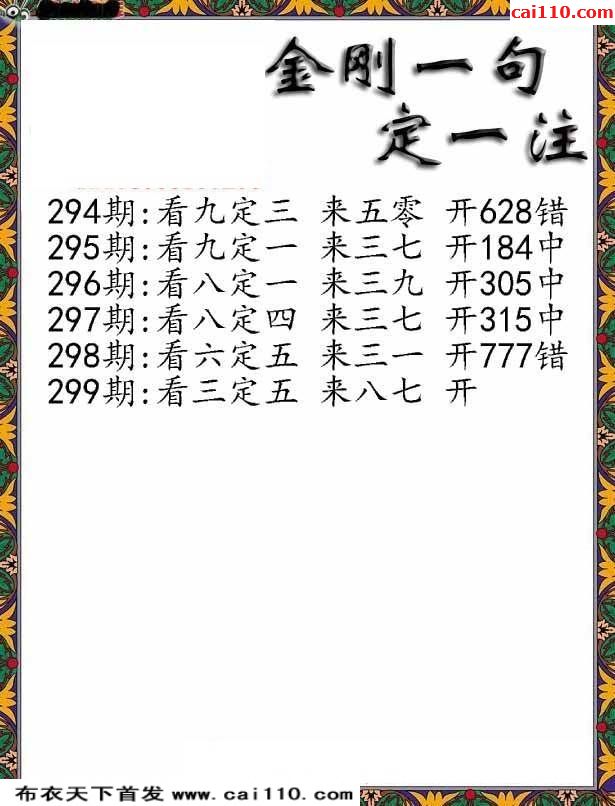 cai110.com
金刚一句
定一注
294期:看九定三 来五零 开628错
295期:看九定一 来三七 开184中
296期:看八定一 来三九 开305中
297期:看八定四 来三七 开315中
298期:看六定五 来三一 开777错
299期:看三定五 来八七 开
布衣天下首发 www.cai110.com